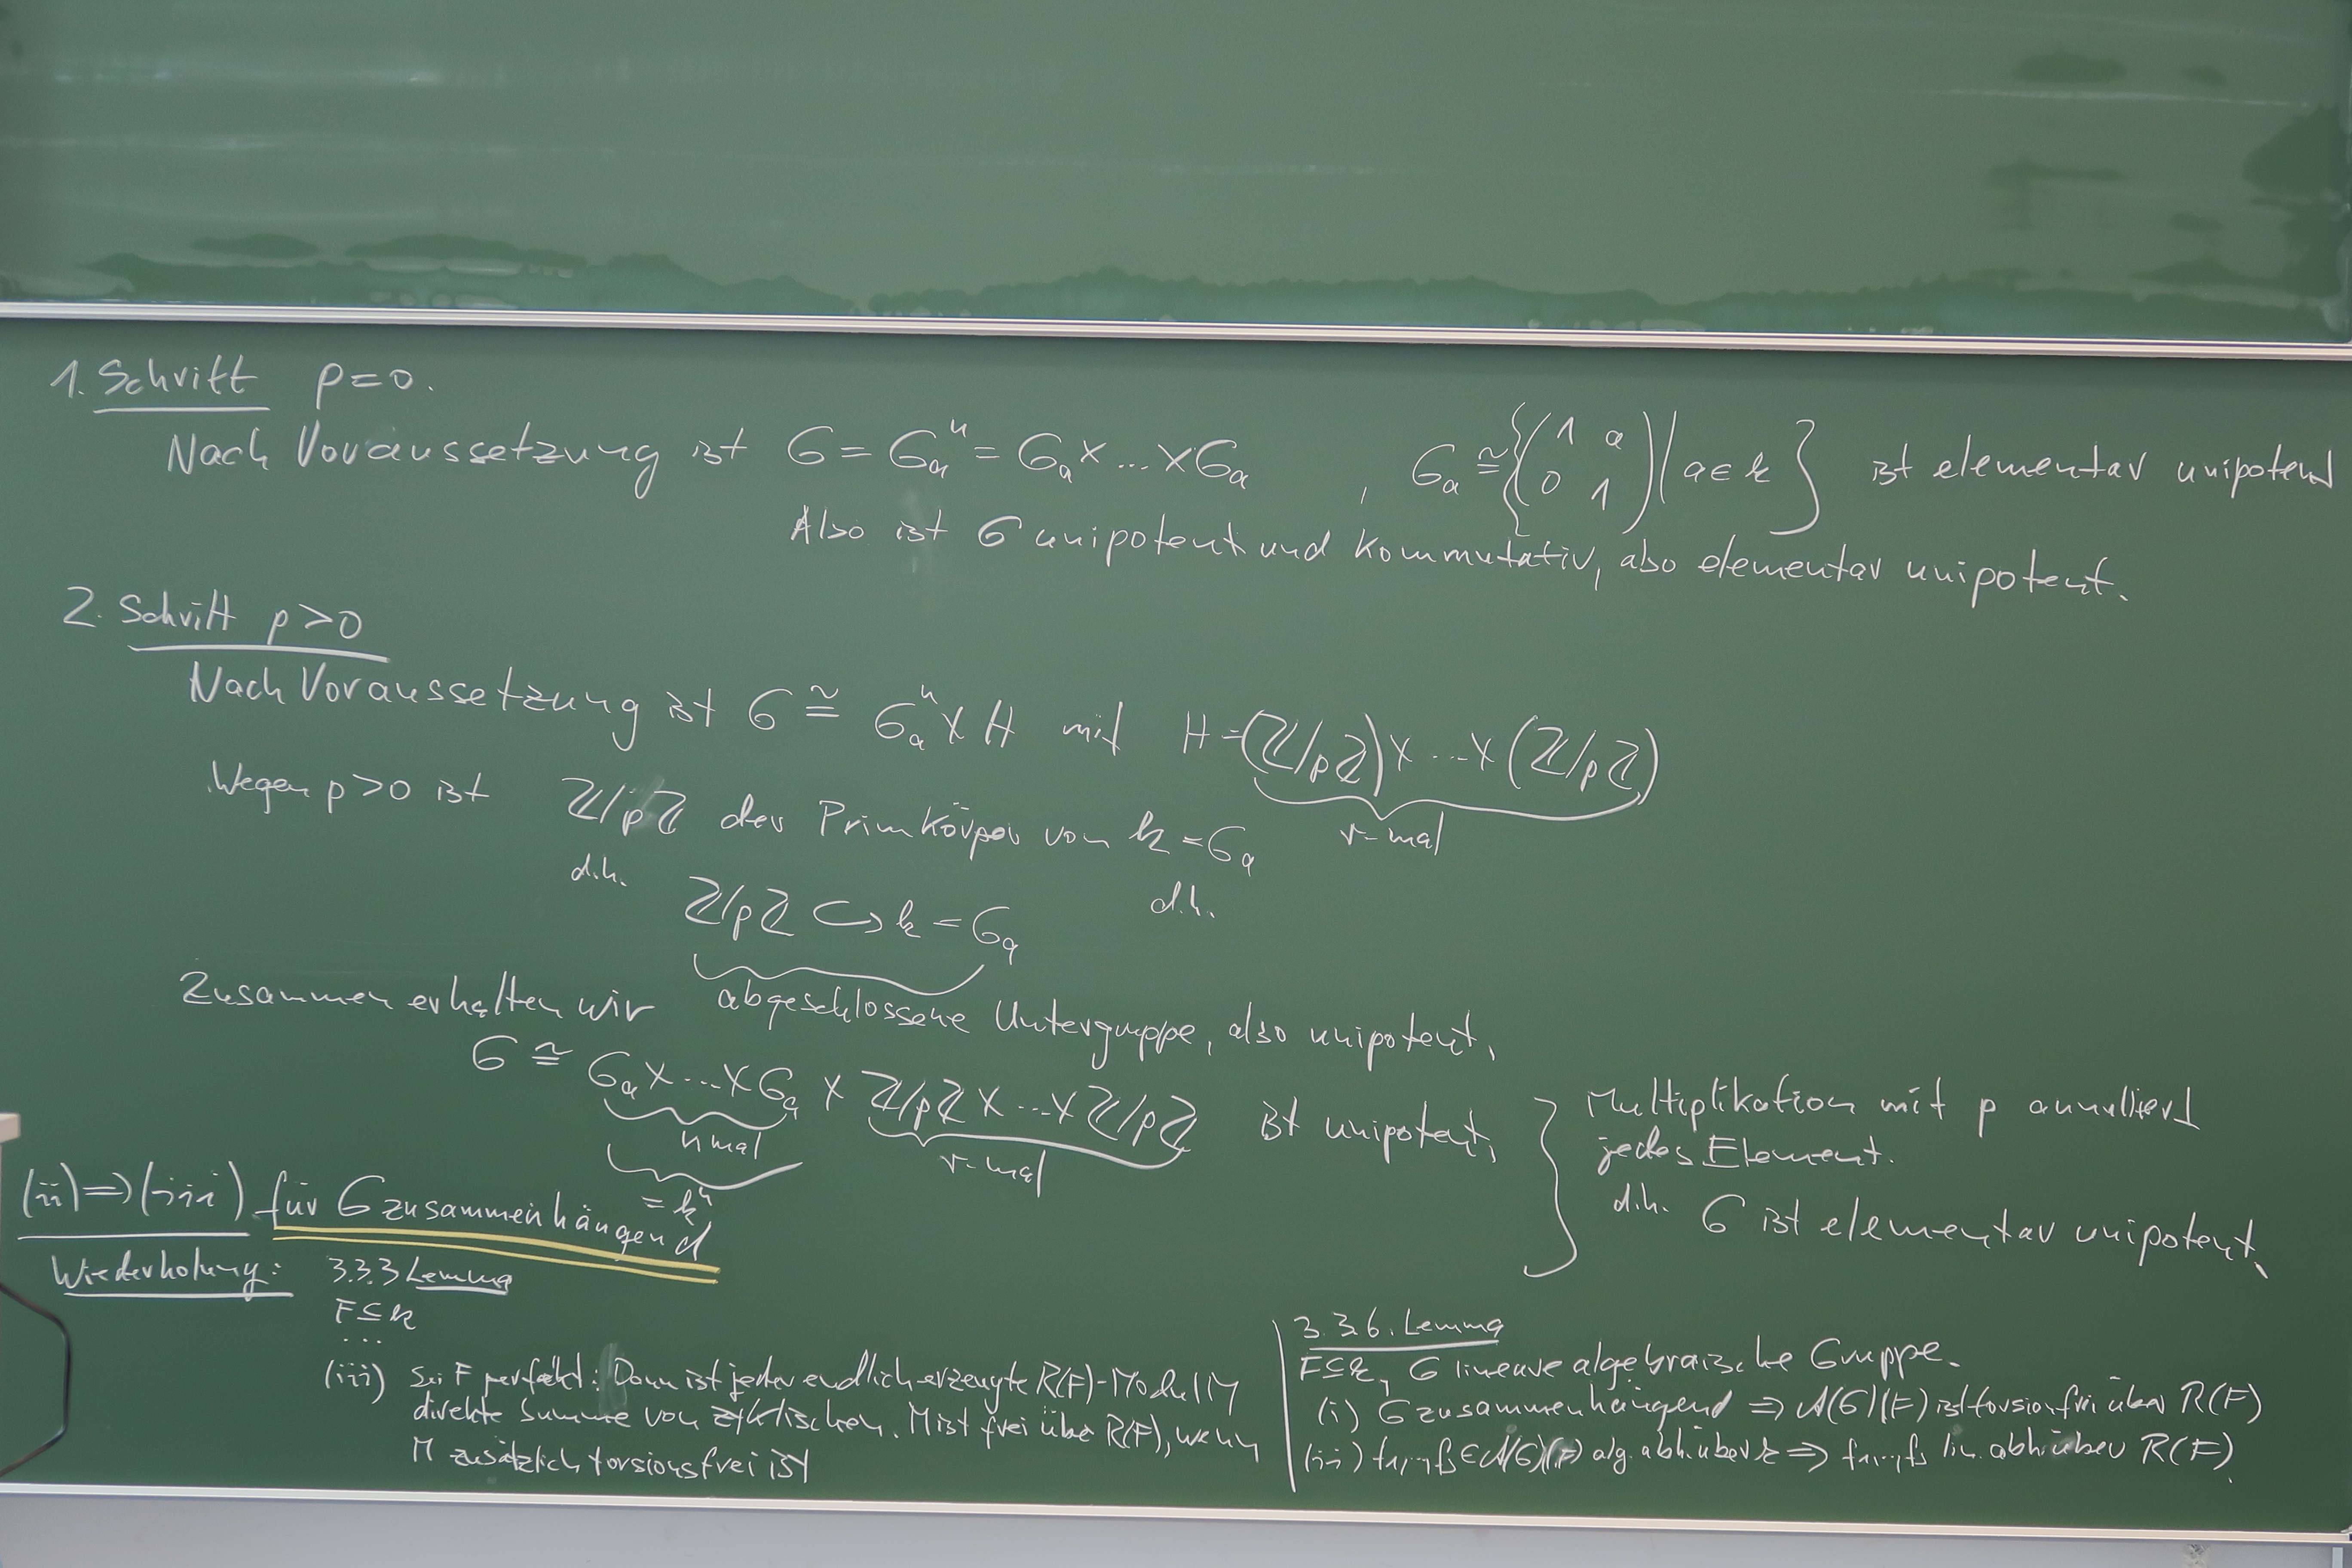 1. Schritt p=0.
Nach Voraussetzung ist G = Gₐⁿ = Gₐ×...×Gₐ , Gₐ ≅ {(1 a; 0 1) | a∈k} ist elementar unipotent
Also ist G unipotent und kommutativ, also elementar unipotent.
2. Schritt p>0
Nach Voraussetzung ist G ≅ Gₐⁿ × H mit H = (ℤ/pℤ)×...×(ℤ/pℤ)
r-mal
Wegen p>0 ist ℤ/pℤ der Primkörper von k = Gₐ
d.h. d.h.
ℤ/pℤ ↪ k = Gₐ
abgeschlossene Untergruppe, also unipotent.
Zusammen erhalten wir
G ≅ Gₐ×...×Gₐ × ℤ/pℤ×...×ℤ/pℤ ist unipotent.
n mal r-mal
= kⁿ
Multiplikation mit p annulliert
jedes Element.
d.h. G ist elementar unipotent.
(ii)⇒(iii) für G zusammenhängend
Wiederholung: 3.3.3 Lemma
F⊆k
...
(iii) Sei F perfekt: Dann ist jeder endlich erzeugte R(F)-Modul M
direkte Summe von zyklischen. M ist frei über R(F), wenn
M zusätzlich torsionsfrei ist
3.3.6. Lemma
F⊆k, G lineare algebraische Gruppe.
(i) G zusammenhängend ⇒ A(G)(F) ist torsionsfrei über R(F)
(ii) f₁,...,fₛ ∈ A(G)(F) alg. abh. über k ⇒ f₁,...,fₛ lin. abh. über R(F).